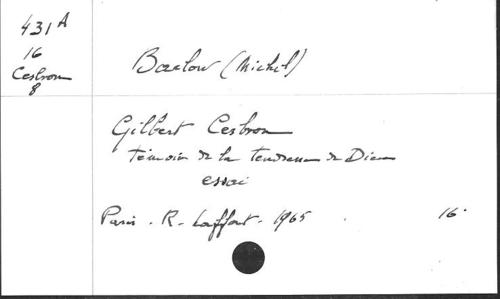 431 A
16
Cesbron
8
Barlow (Michel)
Gilbert Cesbron
témoin de la tendresse de Dieu
essai
Paris. R. Laffont. 1965. 16°